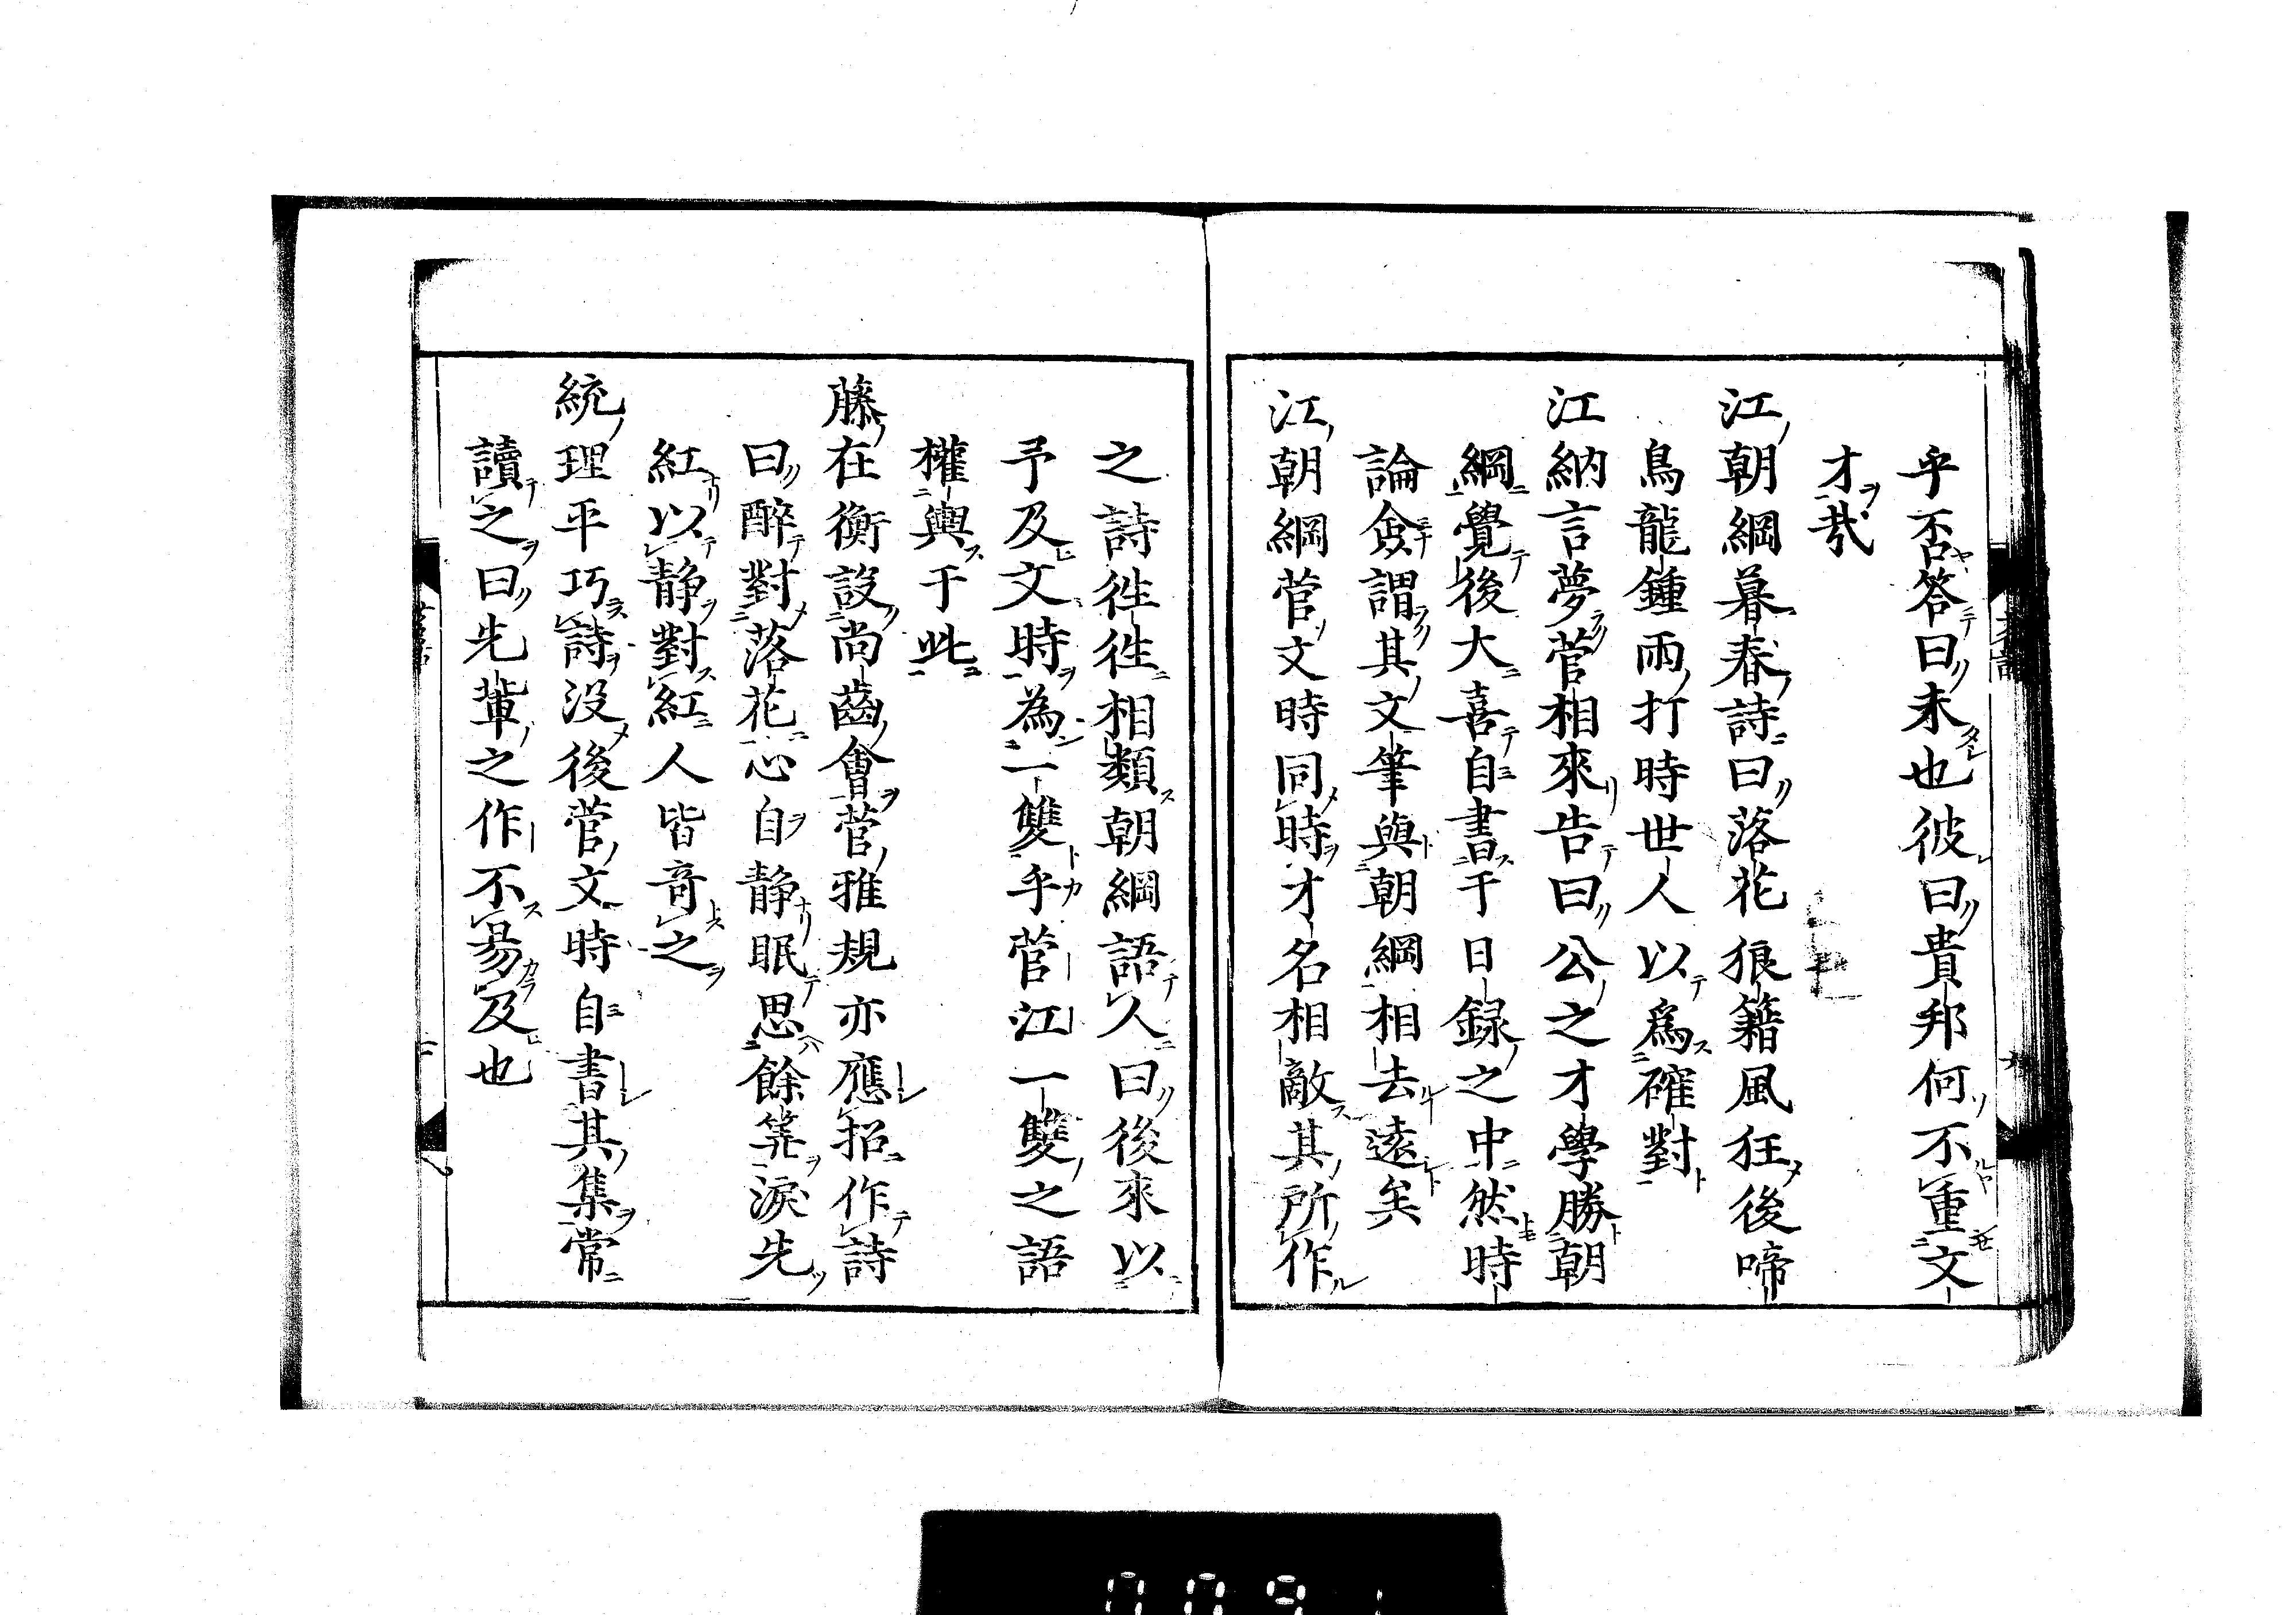 乎否答曰未也彼曰貴邦何不重文
才哉
江朝綱暮春詩曰落花狼籍風狂後啼
鳥龍鍾雨打時世人以爲確對
江納言夢菅相來告曰公之才學勝朝
綱覺後大喜自書于日録之中然時
論僉謂其文筆與朝綱相去遠矣
江朝綱菅文時同時才名相敵其所作
之詩徃徃相類朝綱語人曰後來以
予及文時為一雙乎菅江一雙之語
權輿于此
藤在衡設尚齒會菅雅規亦應招作詩
曰醉對落花心自静眠思餘筭淚先
紅以静對紅人皆奇之
統理平巧詩没後菅文時自書其集常
讀之曰先輩之作不易及也
0091